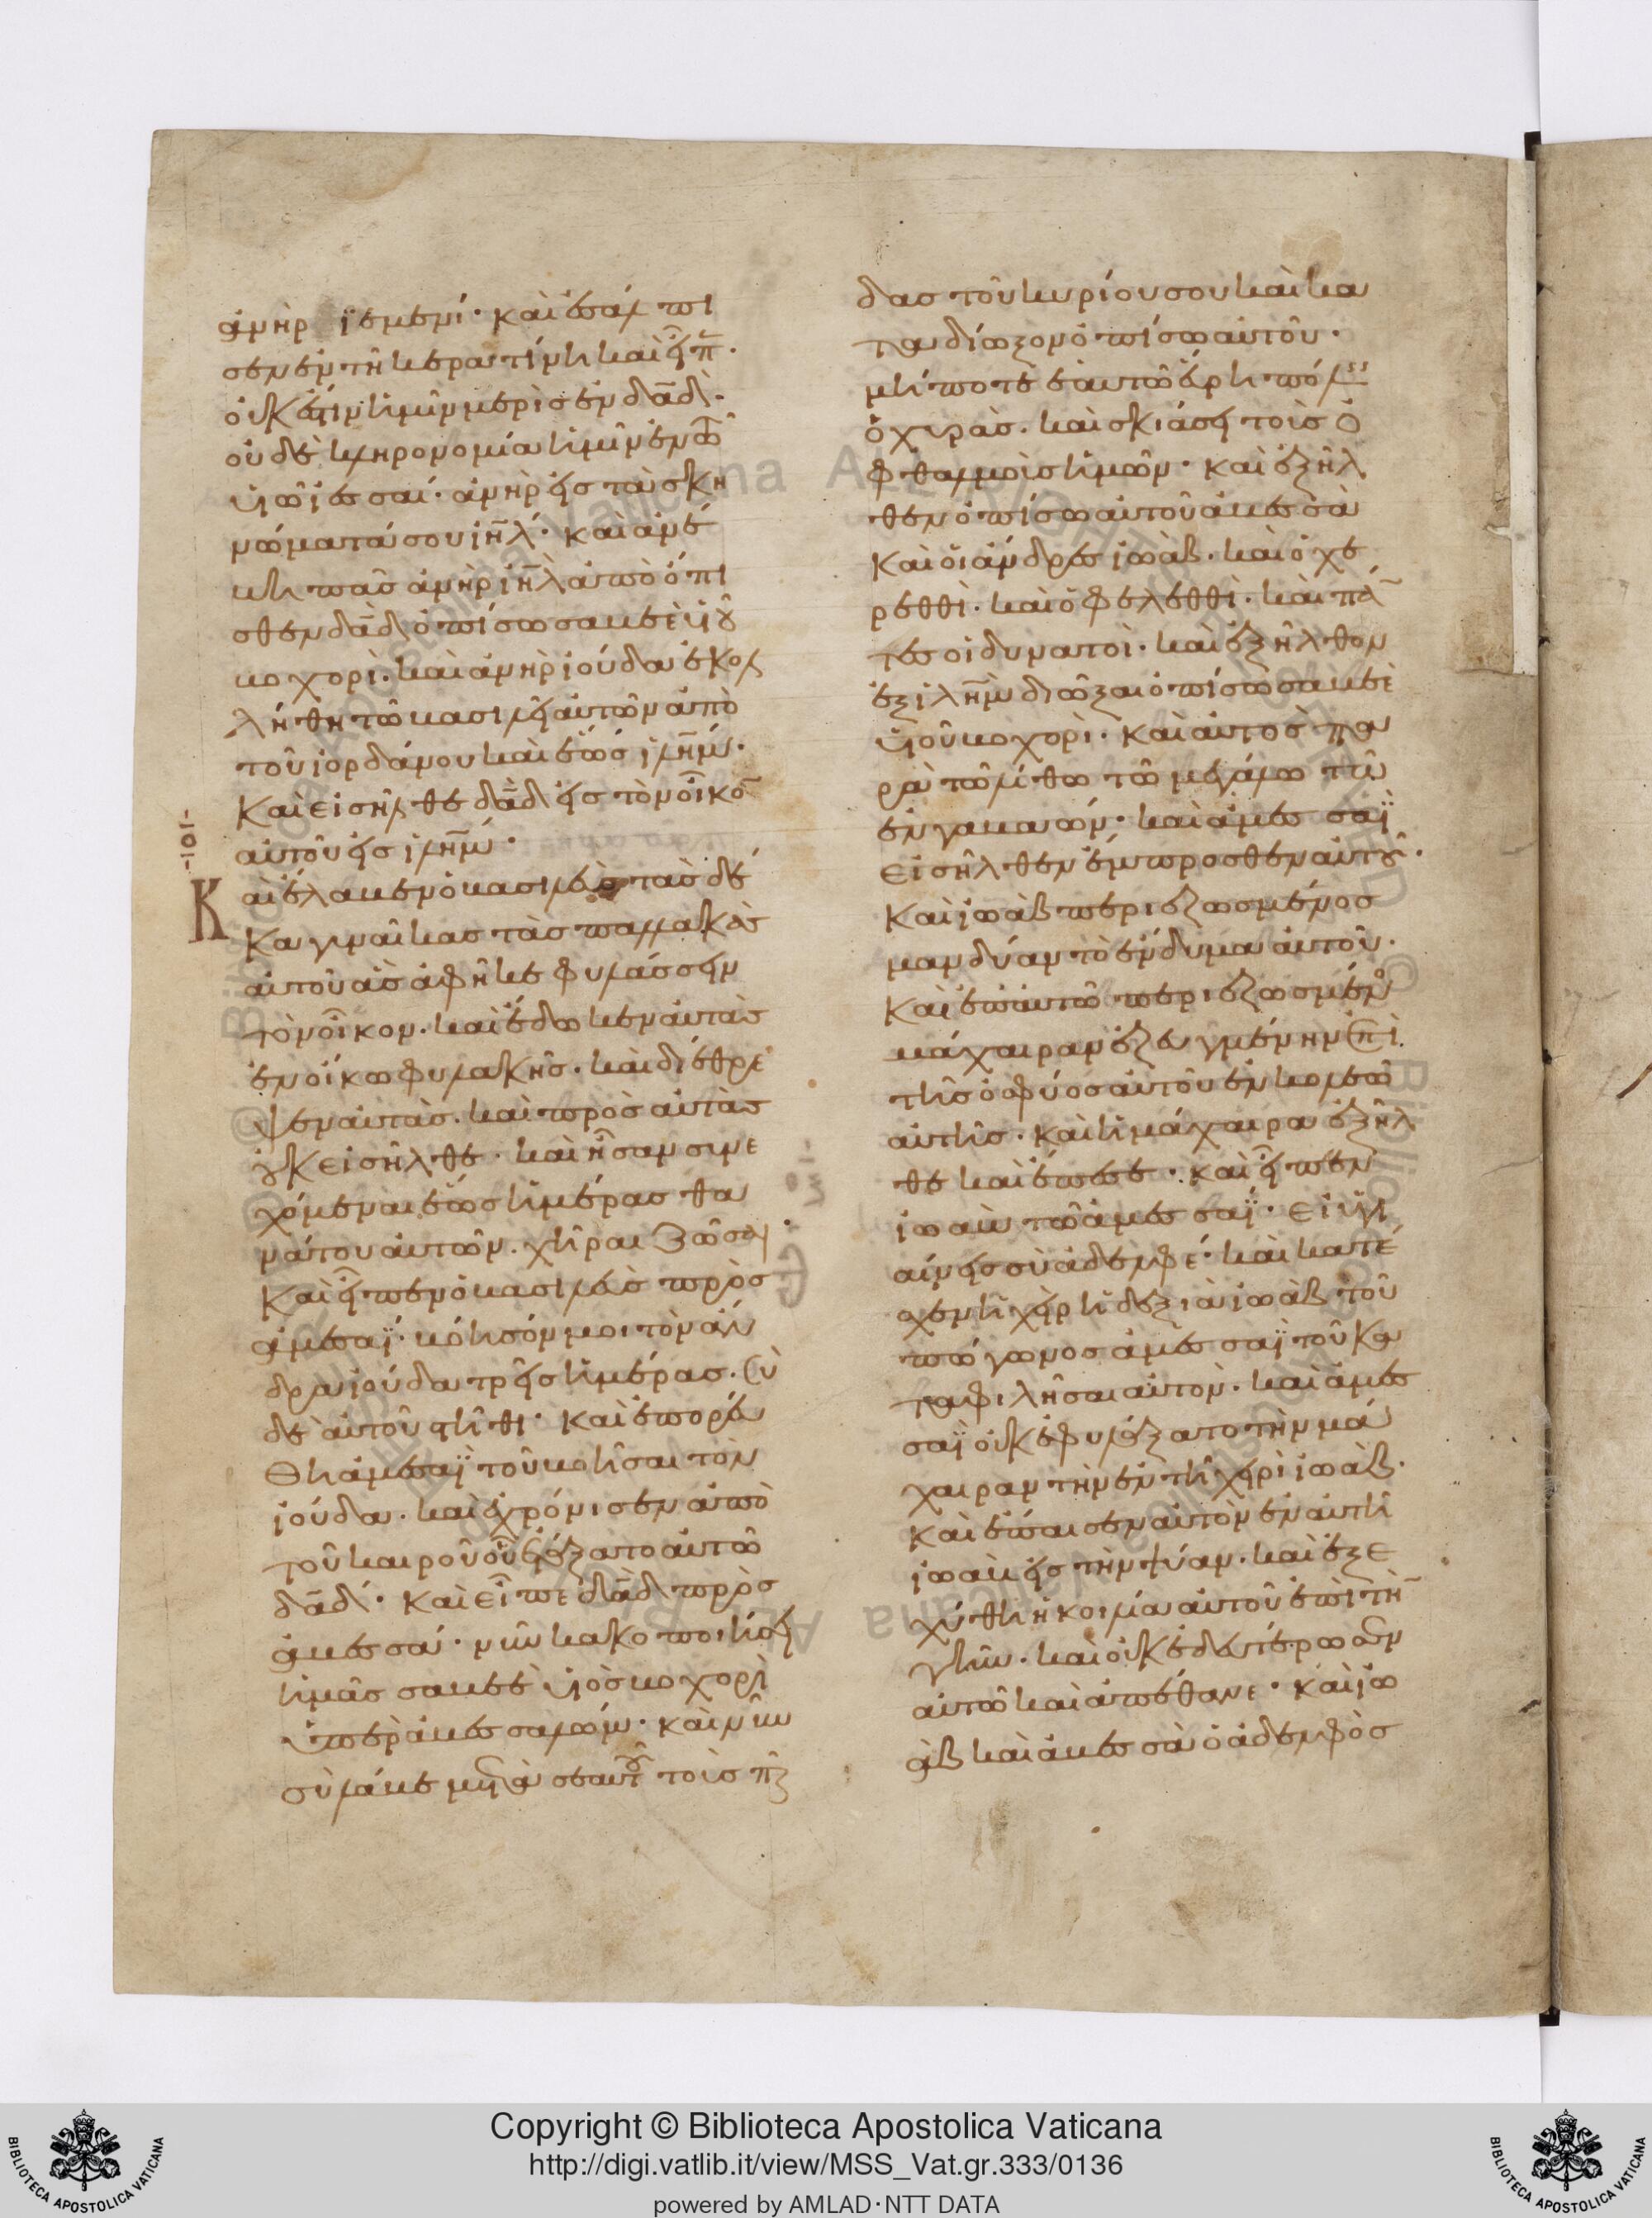 ἀνὴρ ἰεμενί· καὶ ἐσάλπι
σεν ἐν τῇ κερατίνῃ καὶ εἶπ̅·
οὐκ ἔστιν ἡμῖν μερὶς ἐν δα̅δ·
οὐδὲ κληρονομία ἡμῖν ἐν τῶ
υἱῶ ἰεσσαί· ἀνὴρ εἰς τὰ σκη
νώματά σου ιη̅λ· καὶ ἀνέ
βη πᾶς ἀνὴρ ιη̅λ ἀπὸ ὄπι
σθεν δα̅δ ὀπίσω σαβεὲ υἱοῦ
βοχορί· καὶ ἀνὴρ ἰούδα ἐκολ
λήθη τῶ βασιλεῖ αὐτῶν ἀπὸ
τοῦ ἰορδάνου καὶ ἕως ιλη̅μ·
Καὶ εἰσῆλθε δα̅δ εἰς τὸν οἶκο̅
αὐτοῦ εἰς ιλη̅μ·
-101-
Καὶ ἔλαβεν ὁ βασιλεὺς τὰς δέ
κα γυναῖκας τὰς παλλακὰς
αὐτοῦ ἃς ἀφῆκε φυλάσσειν
τὸν οἶκον· καὶ ἔδωκεν αὐτὰς
ἐν οἴκω φυλακῆς· καὶ διέθρε
ψεν αὐτάς· καὶ πρὸς αὐτὰς
οὐκ εἰσῆλθε· καὶ ἦσαν συνε
χόμεναι ἕως ἡμέρας θα
νάτου αὐτῶν· χῆραι ζῶσαι·
Καὶ εἶπεν ὁ βασιλεὺς πρὸς
ἀμεσαΐ· βόησόν μοι τὸν ἄν
δρα ἰούδα τρεῖς ἡμέρας· σὺ
δὲ αὐτοῦ στῆθι· καὶ ἐπορεύ
θη ἀμεσαῒ τοῦ βοῆσαι τὸν
ἰούδα· καὶ ἐχρόνισεν ἀπὸ
τοῦ καιροῦ οὗ ἐτάξατο αὐτῶ
δα̅δ· Καὶ εἶπε δα̅δ πρὸς
ἀβεσσά· νῦν κακοποιήσει
ἡμᾶς σαβεὲ υἱὸς βοχορὶ
ὑπὲρ ἀβεσσαλώμ· καὶ νῦν
σὺ λάβε μετὰ σεαυτοῦ τοὺς παῖ
δας τοῦ κυρίου σου καὶ κα
ταδίωξον ὀπίσω αὐτοῦ·
μήποτε ἑαυτῶ εὕρῃ πόλεις
ὀχυράς· καὶ σκιάσει τοὺς ὀ
φθαλμοὺς ἡμῶν· καὶ ἐξῆλ
θεν ὀπίσω αὐτοῦ ἀβεσσὰ
Καὶ οἱ ἄνδρες ἰωάβ· καὶ ὁ χε
ρεθθί· καὶ ὁ φελεθθί· καὶ πά̅
τες οἱ δυνατοί· καὶ ἐξῆλθον
ἐξ ιλη̅μ διῶξαι ὀπίσω σαβεὲ
υἱοῦ βοχορί· Καὶ αὐτοὶ πα
ρὰ τῶ λίθω τῶ μεγάλω τῶ
ἐν γαβαών· καὶ ἀμεσσαῒ
εἰσῆλθεν ἔμπροσθεν αὐτοῦ·
Καὶ ἰωὰβ περιεζωσμένος
μανδύαν τὸ ἔνδυμα αὐτοῦ·
Καὶ ἐπ' αὐτῶ περιεζωσμένος
μάχαιραν ἐζευγμένην ἐπὶ
τῆς ὀσφύος αὐτοῦ ἐν κολεῶ
αὐτῆς· καὶ ἡ μάχαιρα ἐξῆλ
θε καὶ ἔπεσε· καὶ εἶπεν
ἰωὰβ τῶ ἀμεσσαΐ· εἰ ὑγι
αίνεις σὺ ἀδελφέ· καὶ κατέ
σχεν ἡ χεὶρ ἡ δεξιὰ ἰωὰβ τοῦ
πώγωνος ἀμεσσαῒ τοῦ κα
ταφιλῆσαι αὐτόν· καὶ ἀμεσ
σαῒ οὐκ ἐφυλάξατο τὴν μά
χαιραν τὴν ἐν τῇ χειρὶ ἰωάβ·
Καὶ ἔπαισεν αὐτὸν ἐν αὐτῇ
ἰωὰβ εἰς τὴν ψύαν· καὶ ἐξε
χύθη ἡ κοιλία αὐτοῦ ἐπὶ τὴ̅
γῆν· καὶ οὐκ ἐδευτέρωσεν
αὐτῶ καὶ ἀπέθανε· Καὶ ἰω
ὰβ καὶ ἀβεσσὰ ὁ ἀδελφὸς
Copyright © Biblioteca Apostolica Vaticana
http://digi.vatlib.it/view/MSS_Vat.gr.333/0136
powered by AMLAD·NTT DATA
BIBLIOTECA APOSTOLICA VATICANA
BIBLIOTECA APOSTOLICA VATICANA